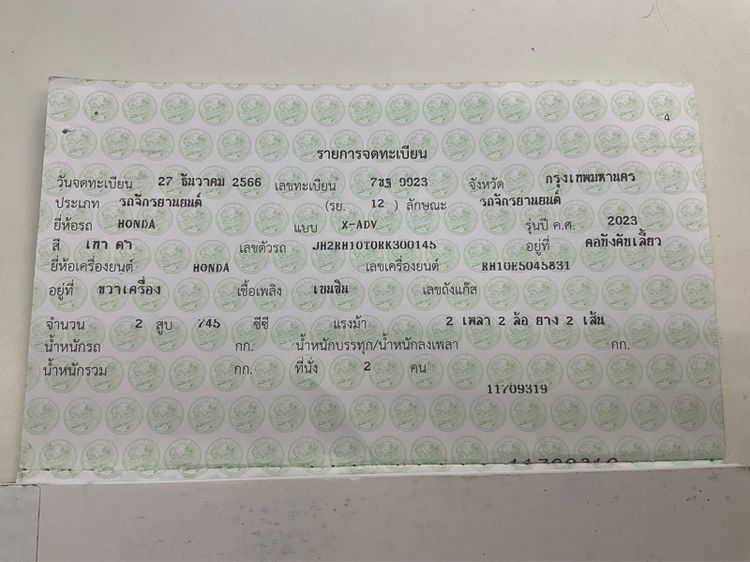 4
รายการจดทะเบียน
วันจดทะเบียน 27 ธันวาคม 2566 เลขทะเบียน 7ขฐ 9923 จังหวัด กรุงเทพมหานคร
ประเภท รถจักรยานยนต์ (รย. 12 ) ลักษณะ รถจักรยานยนต์
ยี่ห้อรถ HONDA แบบ X-ADV รุ่นปี ค.ศ. 2023
สี เทา ดำ เลขตัวรถ JH2RH10T0RK300145 อยู่ที่ คอบังคับเลี้ยว
ยี่ห้อเครื่องยนต์ HONDA เลขเครื่องยนต์ RH10E5045831
อยู่ที่ ขวาเครื่อง เชื้อเพลิง เบนซิน เลขถังแก๊ส
จำนวน 2 สูบ 745 ซีซี แรงม้า 2 เพลา 2 ล้อ ยาง 2 เส้น
น้ำหนักรถ กก. น้ำหนักบรรทุก/น้ำหนักลงเพลา กก.
น้ำหนักรวม กก. ที่นั่ง 2 คน
11709319